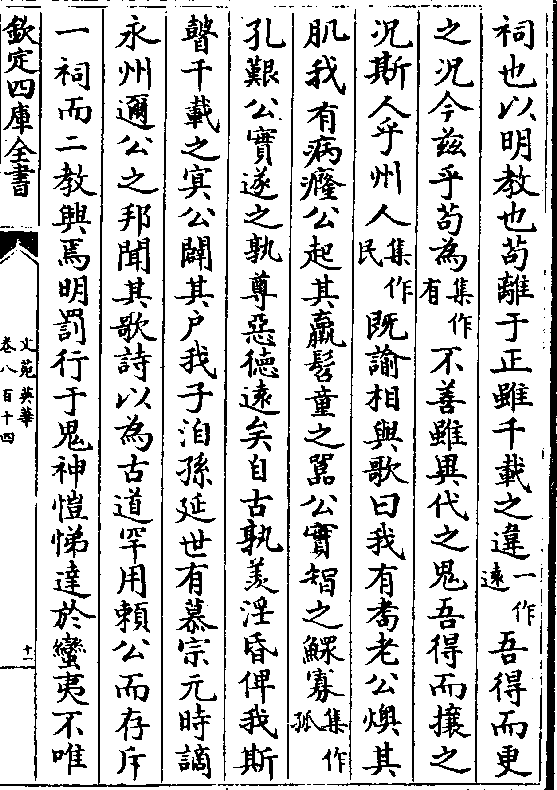 祠也以明教也苟離于正雖千載之違一作逺吾得而更
之况今兹乎苟為集作有不善雖異代之鬼吾得而攘之
况斯人乎州人集作民既諭相與歌曰我有耉老公燠其
肌我有病癃公起其羸髫童之嚚公實智之鰥寡集作孤
孔艱公實遂之孰尊惡德逺矣自古孰羡淫昏俾我斯
瞽千載之㝠公闢其户我子洎孫延世有慕宗元時謫
永州邇公之邦聞其歌詩以為古道罕用頼公而存斥
一祠而二教興焉明罰行于鬼神愷悌達於蠻夷不唯
欽定四庫全書
文苑英華
卷八百十四
十二